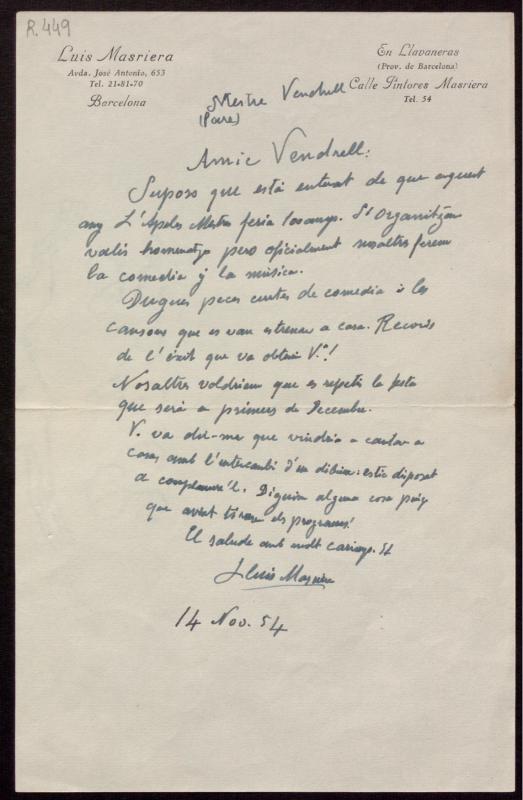 R.449
Luis Masriera
Avda. José Antonio, 653
Tel. 21-81-70
Barcelona
En Llavaneras
(Prov. de Barcelona)
Calle Pintores Masriera
Tel. 54
Mestre Vendrell
(Pare)
Amic Vendrell:
Suposo que està enterat de que aquest
any L'Apeles Mestres feria 100 anys. S'Organitzan
varis homenatges pero oficialment nosaltres ferem
la comedia y la música.
Dugues peces curtes de comedia i les
cansons que es van estrenar a casa. Recordo
de l'éxit que va obtenir V.!
Nosaltres voldriem que es repetís la festa
que será a primers de Decembre.
V. va dir-me que vindria a cantar a
casa amb l'intercambi d'un dibuix: estic disposat
a complaure'l. Diguim alguna cosa puig
que avans tirarem els programes!
El saluda amb molt carinyo. St
Lluís Masriera
14 Nov. 54